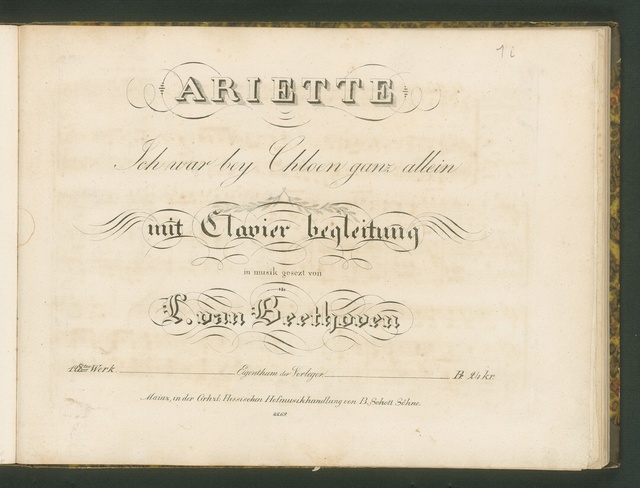 ARIETTE
Ich war bey Chloen ganz allein
mit Clavier begleitung
in musik gesezt von
L. van Beethoven
Werk Eigenthum der Verleger. Pr. 24 kr.
Mainz, in der Grhzl. Hessischen Hofmusikhandlung von B. Schott Söhne.